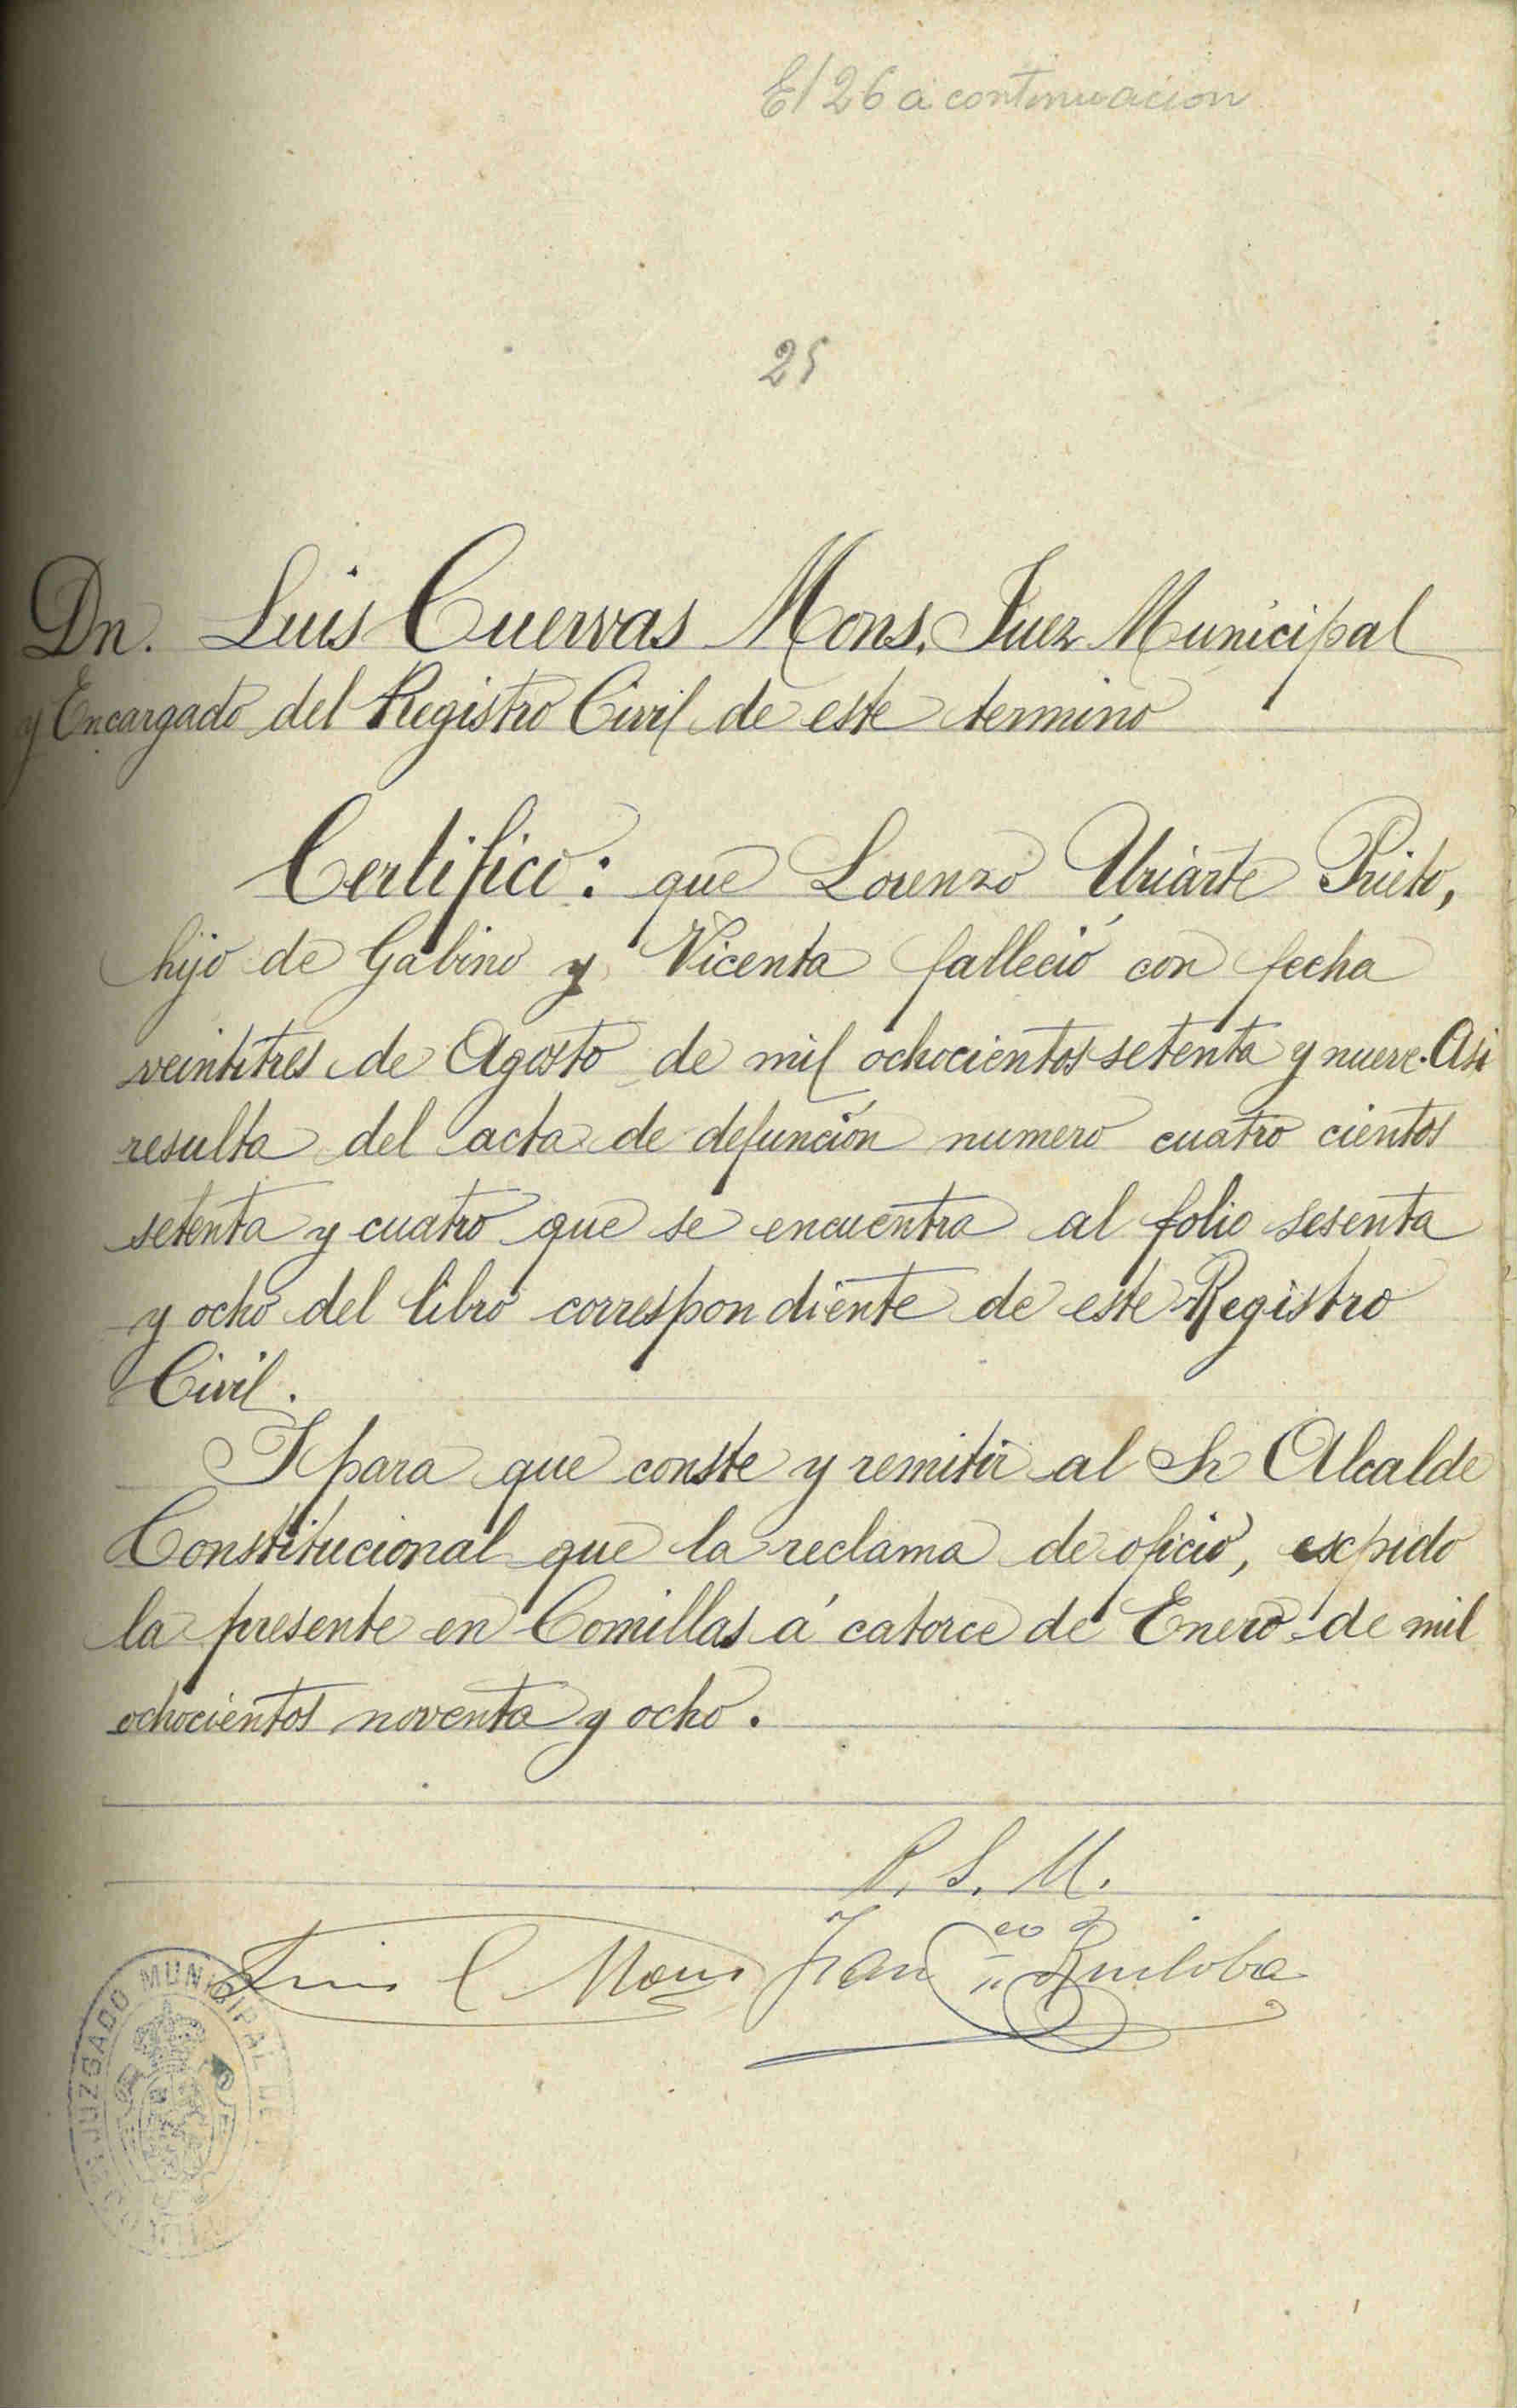 El 26 a continuacion
25
Dn. Luis Cuervas Mons, Juez Municipal
y Encargado del Registro Civil de este termino
Certifico: que Lorenzo Uriarte Prieto,
hijo de Gabino y Vicenta falleció con fecha
veintitres de Agosto de mil ochocientos setenta y nueve. Asi
resulta del acta de defunción numero cuatro cientos
setenta y cuatro que se encuentra al folio sesenta
y ocho del libro correspondiente de este Registro
Civil.
Y para que conste y remitir al Sr Alcalde
Constitucional que la reclama de oficio, expido
la presente en Comillas á catorce de Enero de mil
ochocientos noventa y ocho.
P. S. M.
Luis C. Mons Franco Ruiloba
JUZGADO MUNICIPAL DE